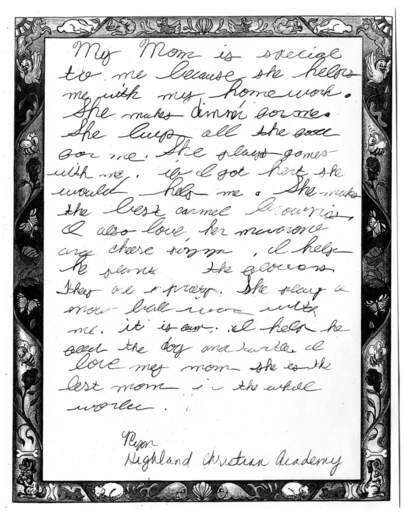 My Mom is special
to me because she helps
me with my homework.
She makes dinnr for me.
She buys all the food
for me. She plays games
with me. if I got hert she
would help me. She makes
the best carmel brownis.
I also love her
chese I help
he plant the flowers
They are so prety. She plays a
snow ball with
me. it is fun. I help he
feed the dog and turtle. I
love my mom she is the
best mom in the whole
world.
Ryan
Highland Christian Academy